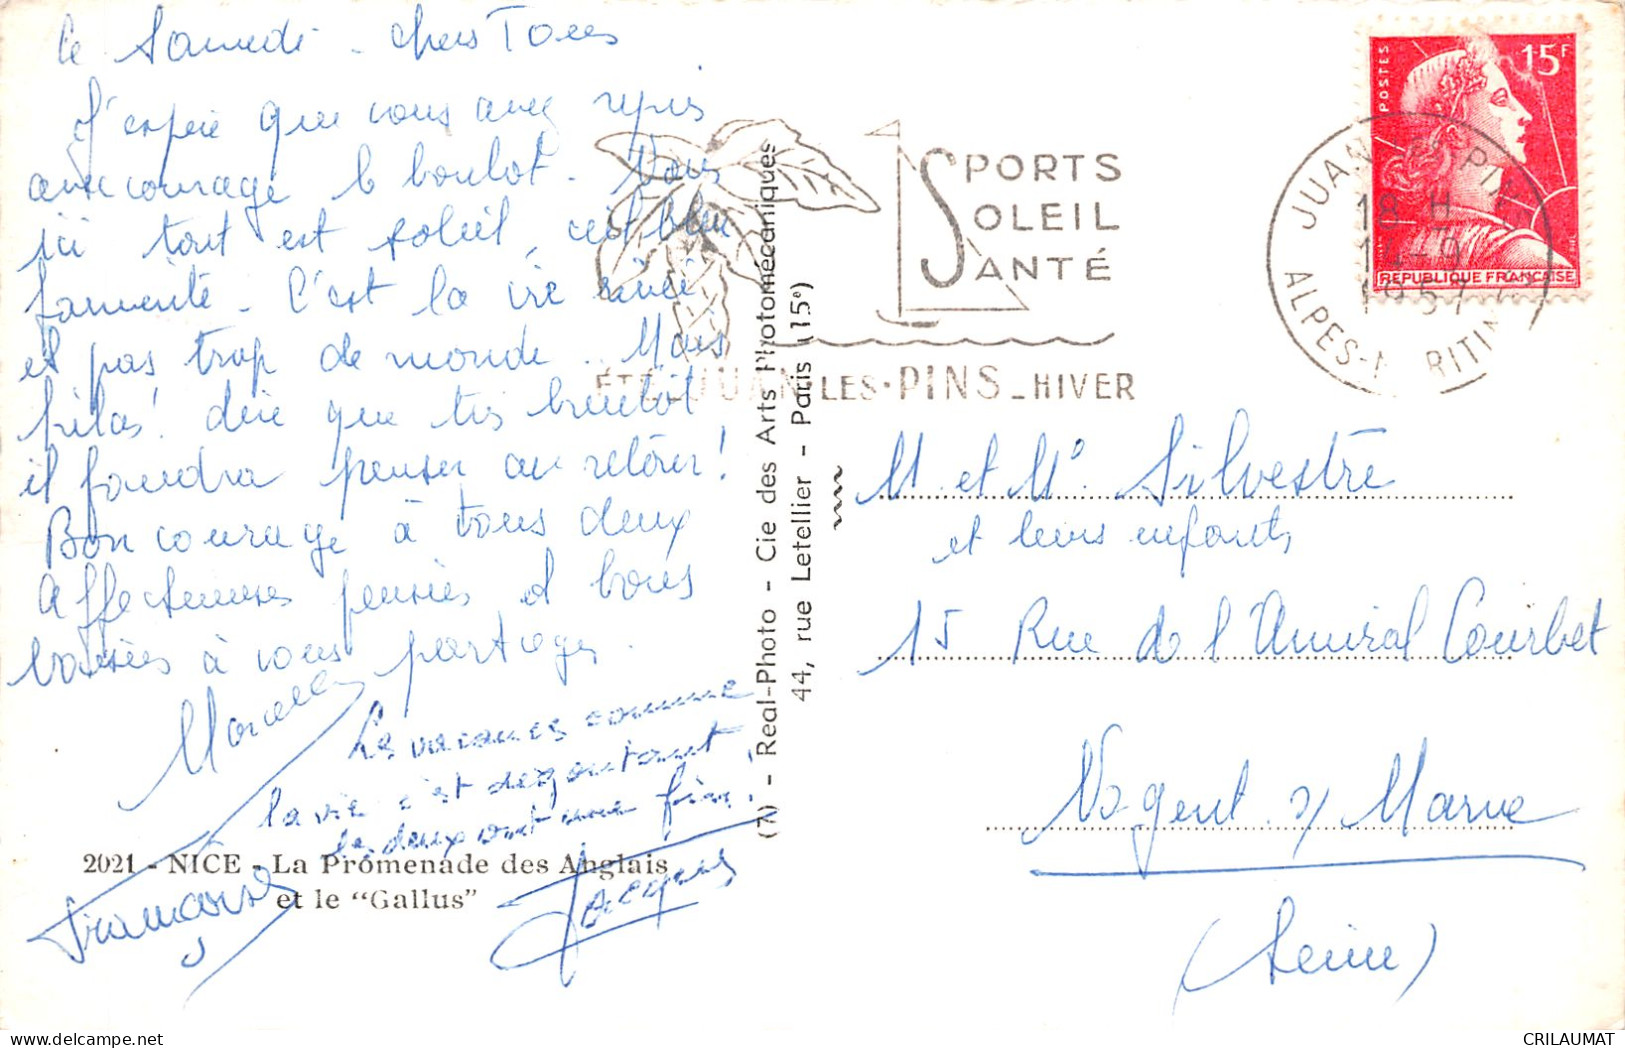 le Samedi - chers Tous
J'espère que vous avez repris
avec courage le boulot. Nous
ici tout est soleil, ciel bleu
farniente. C'est la vie rêvée
et pas trop de monde. Mais
hélas! dire que très bientôt
il faudra penser au retour!
Bon courage à tous deux
Affectueuses pensées et bons
baisers à vous partager.
Marcelle
Les vacances comme
la vie c'est dégoutant
les deux ont une fin!
2021 - NICE - La Promenade des Anglais
et le "Gallus"
Françoise
Jacques
(7) - Real-Photo - Cie des Arts Photomécaniques
44, rue Letellier - Paris (15e)
SPORTS
SOLEIL
SANTÉ
ÉTÉ JUAN-LES-PINS_HIVER
POSTES
15F
REPUBLIQUE FRANÇAISE
JUAN LES PINS
18 H
14-9
1957
ALPES-MARITIMES
M et Me Silvestre
et leurs enfants
15 Rue de l'Amiral Courbet
Nogent s/ Marne
(Seine)
CRILAUMAT